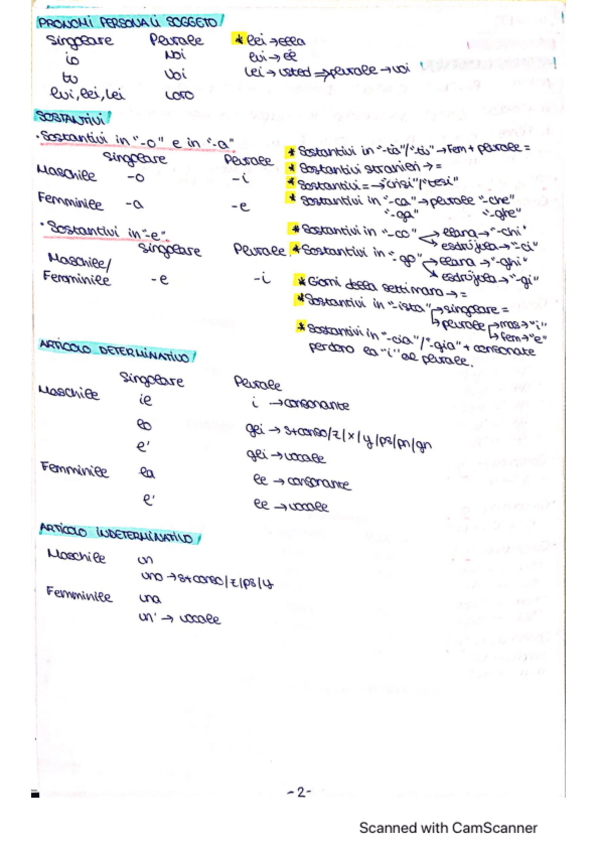 PRONOMI PERSONALI SOGGETTO/
Singolare Plurale * lei → ella
io Noi lui → él
tu Voi Lei → usted ⇒ plurale → voi
lui, lei, Lei Loro
SOSTANTIVI/
· Sostantivi in "-o" e in "-a"
Singolare Plurale
Maschile -o -i
Femminile -a -e
· Sostantivi in "-e"
Singolare Plurale
Maschile/
Femminile -e -i
* Sostantivi in "-tà"/"-tù" → Fem + plurale =
* Sostantivi stranieri → =
* Sostantivi = → "crisi"/"tesi"
* Sostantivi in "-ca" → plurale "-che"
"-ga" "-ghe"
* Sostantivi in "-co" → llana → "-chi"
esdrújula → "-ci"
* Sostantivi in "-go" → llana → "-ghi"
esdrújula → "-gi"
* Giorni della settimana → =
* Sostantivi in "-ista" → singolare =
plurale → mas → "i"
fem → "e"
* Sostantivi in "-cia"/"-gia" + consonate
perdono la "i" al plurale.
ARTICOLO DETERMINATIVO/
Singolare Plurale
Maschile il i → consonante
lo gli → s+conso/z/x/y/ps/pn/gn
l' gli → vocale
Femminile la le → consonante
l' le → vocale
ARTICOLO INDETERMINATIVO/
Maschile un
uno → s+conso/z/ps/y
Femminile una
un' → vocale
-2-
Scanned with CamScanner